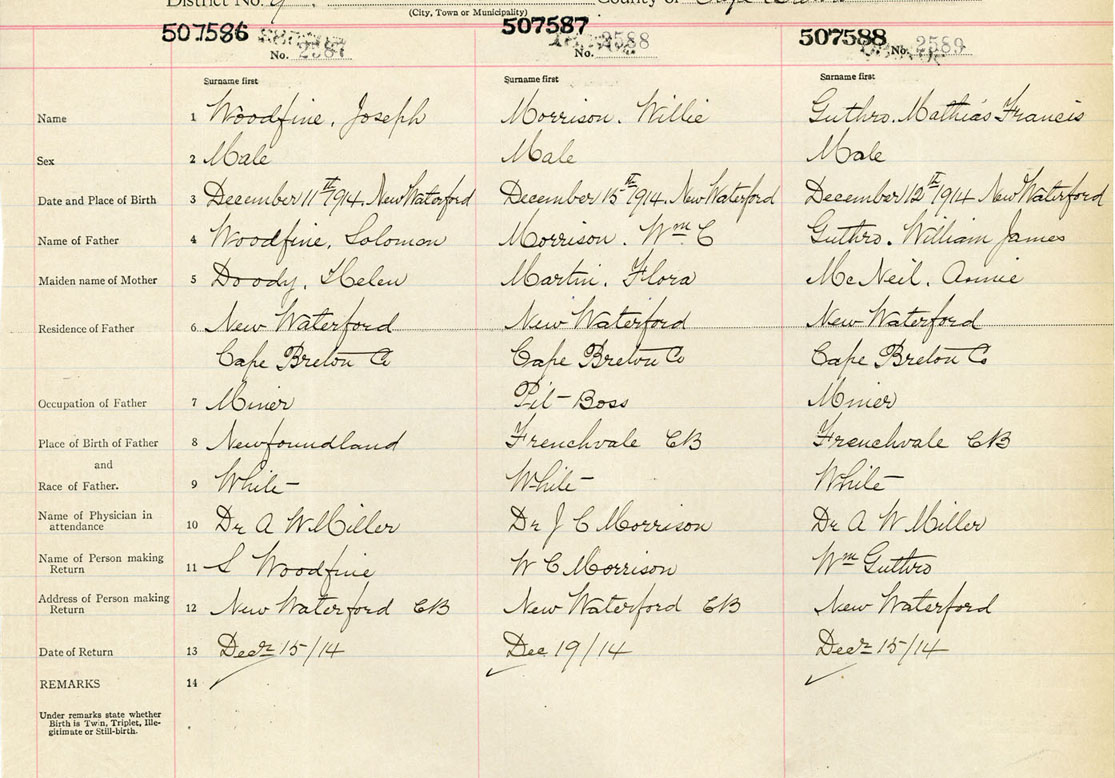 District No. 9. County of Cape Breton
(City, Town or Municipality)
507586 507587 507588
No. 2587 No. 2588 No. 2589
Surname first Surname first Surname first
Name 1 Woodfine, Joseph Morrison. Willie Guthro. Mathias Francis
Sex 2 Male Male Male
Date and Place of Birth 3 December 11th 1914. New Waterford December 15th 1914. New Waterford December 12th 1914. New Waterford
Name of Father 4 Woodfine, Solomon Morrison. Wm C Guthro. William James
Maiden name of Mother 5 Doody, Helen Martin. Flora McNeil. Annie
Residence of Father 6 New Waterford New Waterford New Waterford
Cape Breton Co Cape Breton Co Cape Breton Co
Occupation of Father 7 Miner Pit-Boss Miner
Place of Birth of Father 8 Newfoundland Frenchvale CB Frenchvale CB
and
Race of Father. 9 White White White
Name of Physician in attendance 10 Dr A W Miller Dr J C Morrison Dr A W Miller
Name of Person making Return 11 S Woodfine W C Morrison Wm Guthro
Address of Person making Return 12 New Waterford CB New Waterford CB New Waterford
Date of Return 13 Decr 15/14 Dec 19/14 Decr 15/14
REMARKS 14
Under remarks state whether
Birth is Twin, Triplet, Ille-
gitimate or Still-birth.